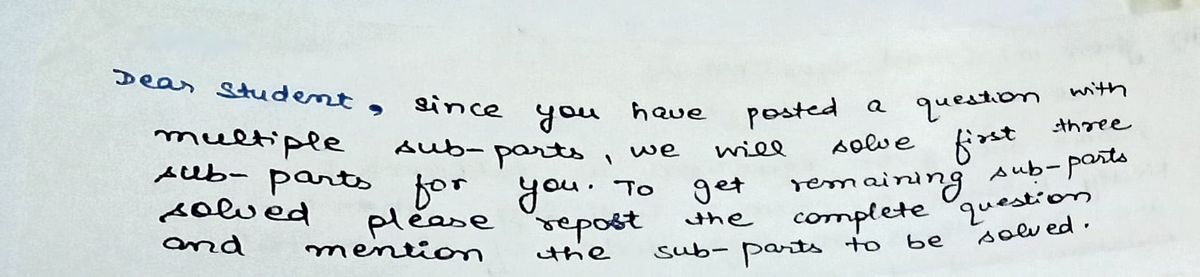 Dear Student, since you have posted a question with
multiple sub-parts, we will solve first three
sub-parts for you. To get remaining sub-parts
solved please repost the complete question
and mention the sub-parts to be solved.